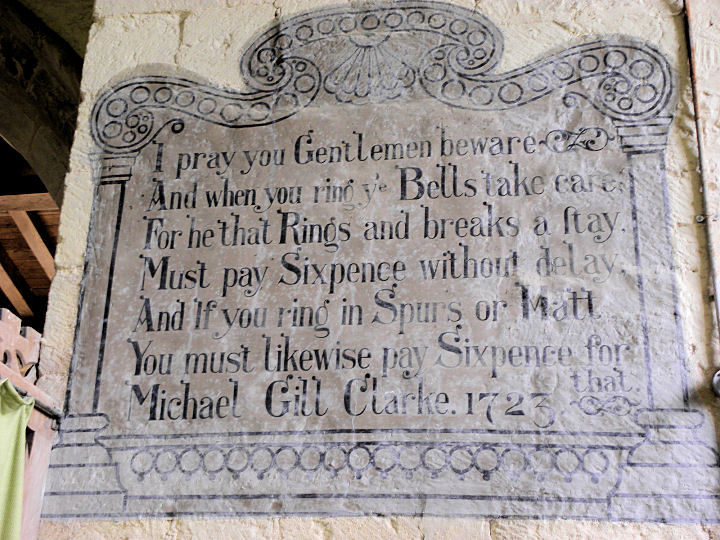 I pray you Gentlemen beware
And when you ring yᵉ Bells take care
For he that Rings and breaks a ſtay.
Must pay Sixpence without delay.
And If you ring in Spurs or Hatt
You must likewise pay Sixpence for
that.
Michael Gill Clarke. 1723